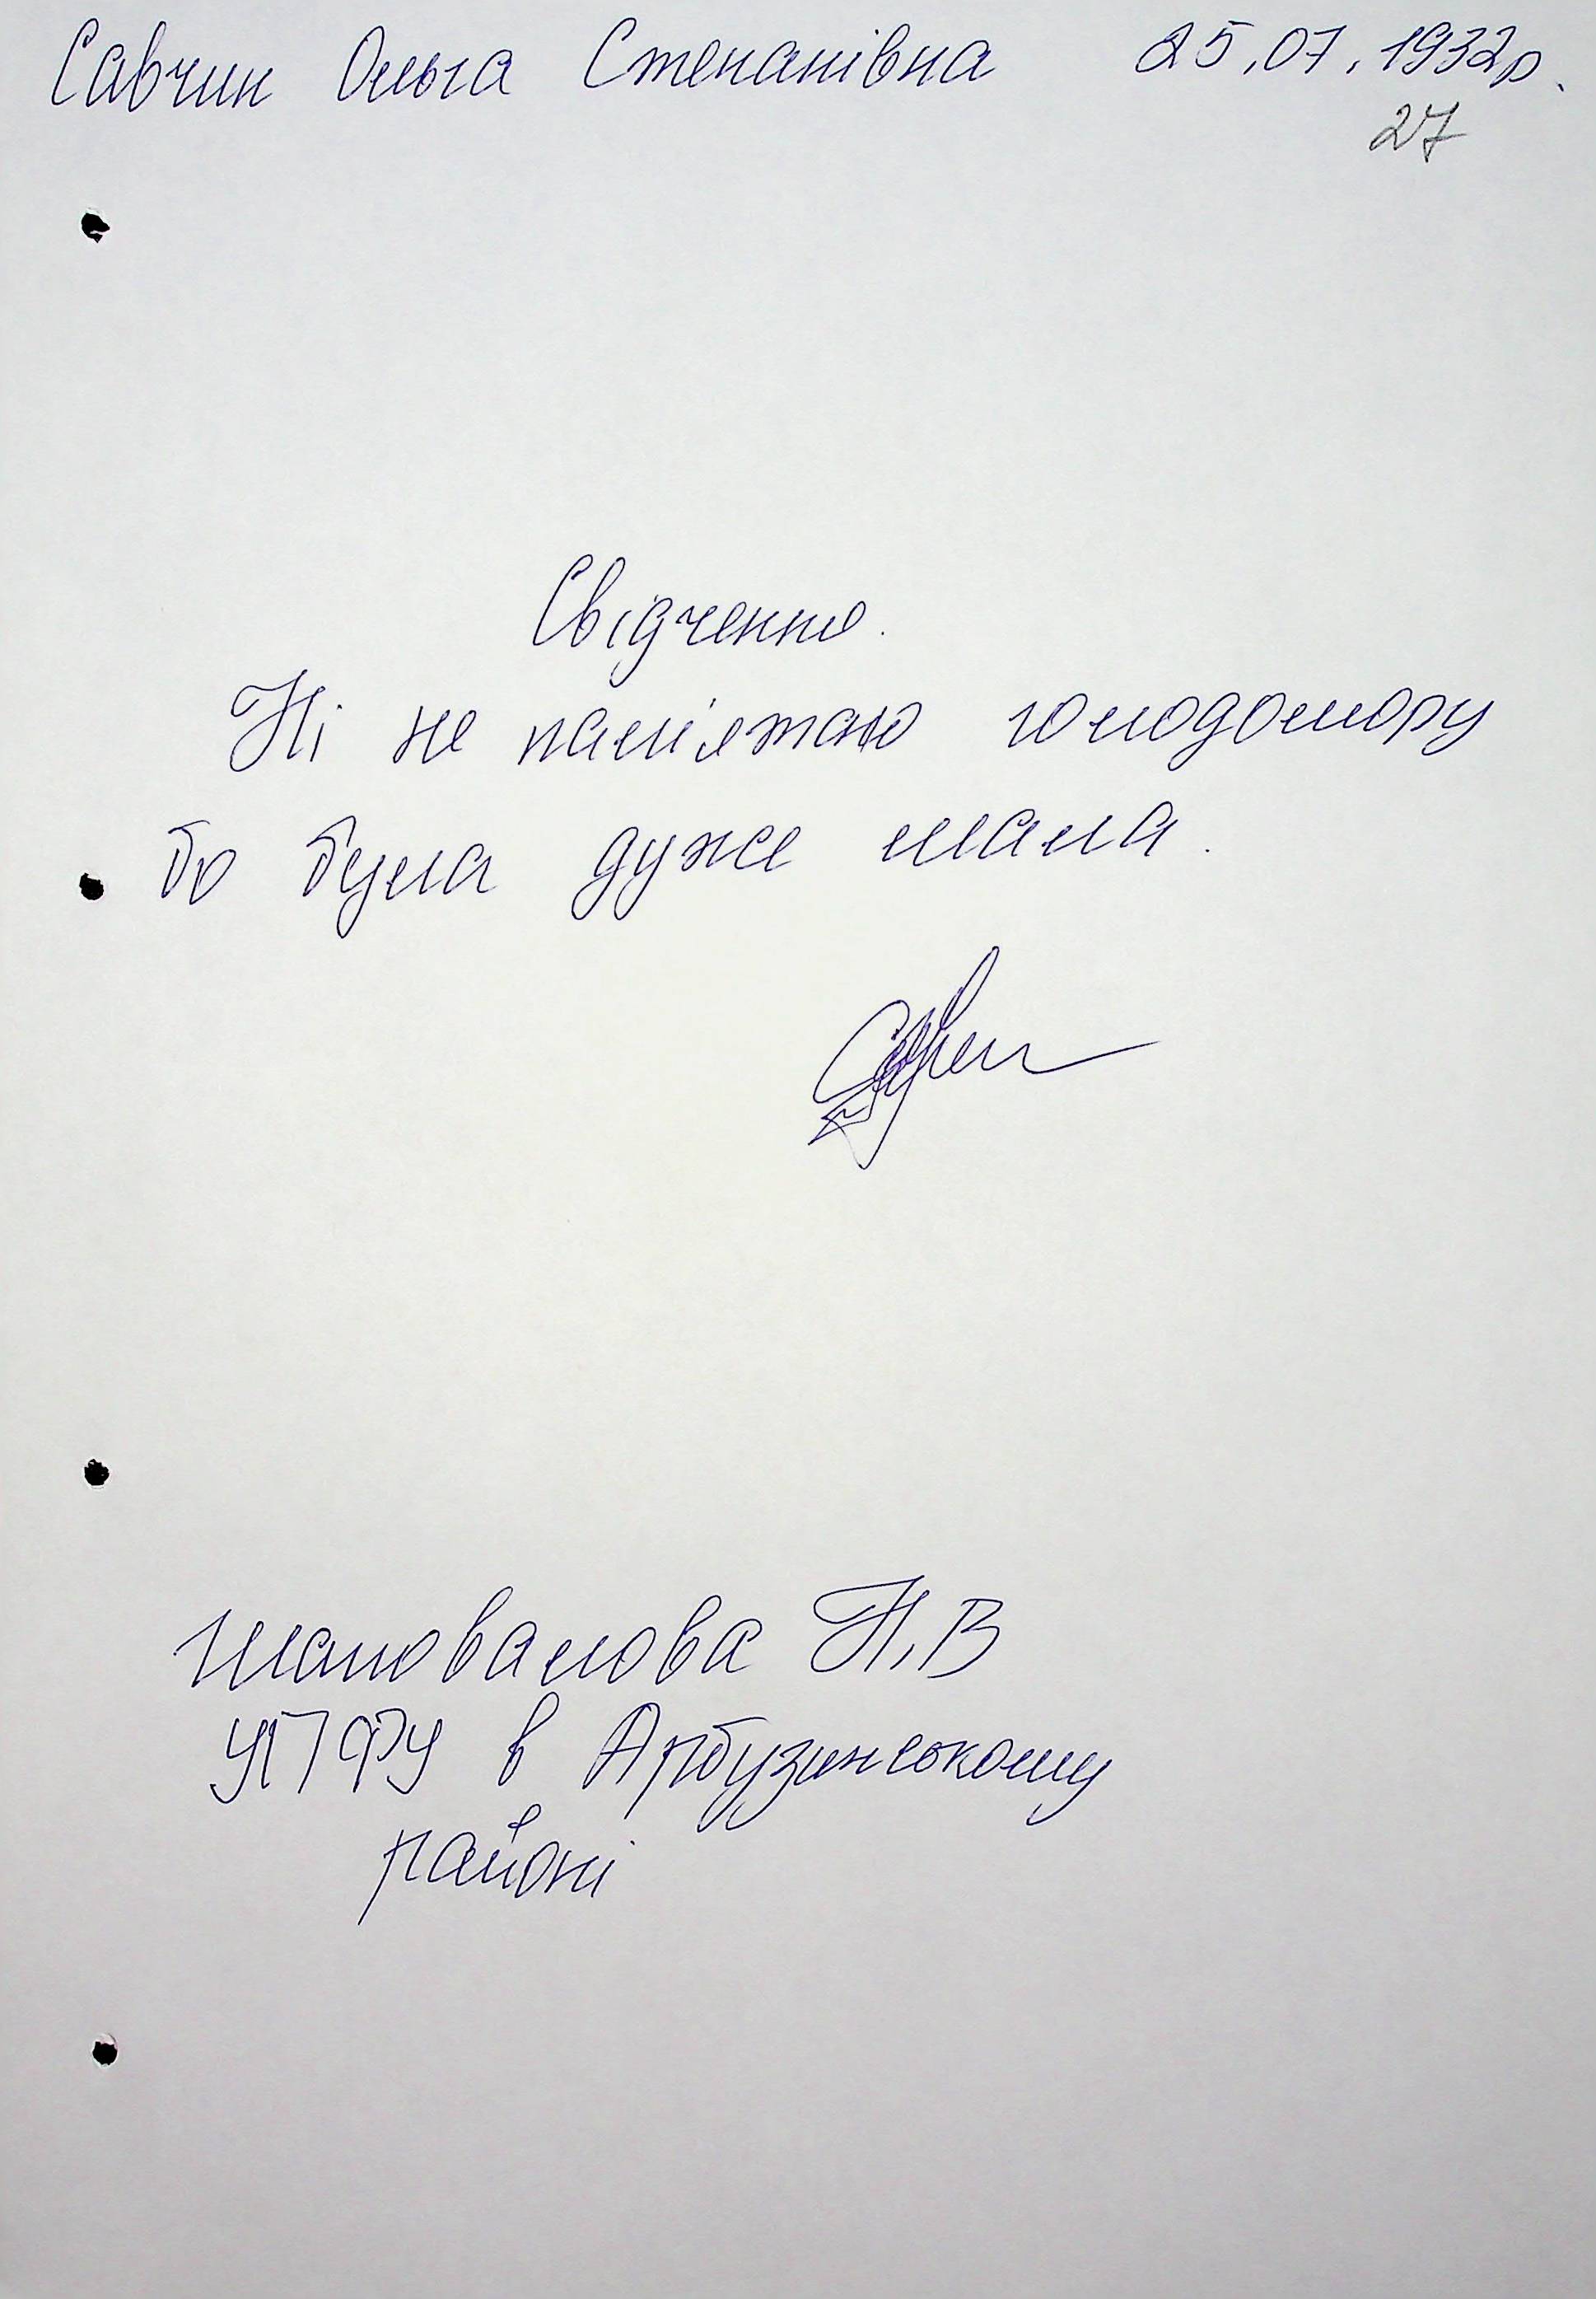 Савчин Ольга Степанівна 25.07.1932р.
27
Свідчення.
Ні не пам'ятаю голодомору
бо була дуже мала.
Шаповалова Н.В
УПФУ в Арбузинському
районі